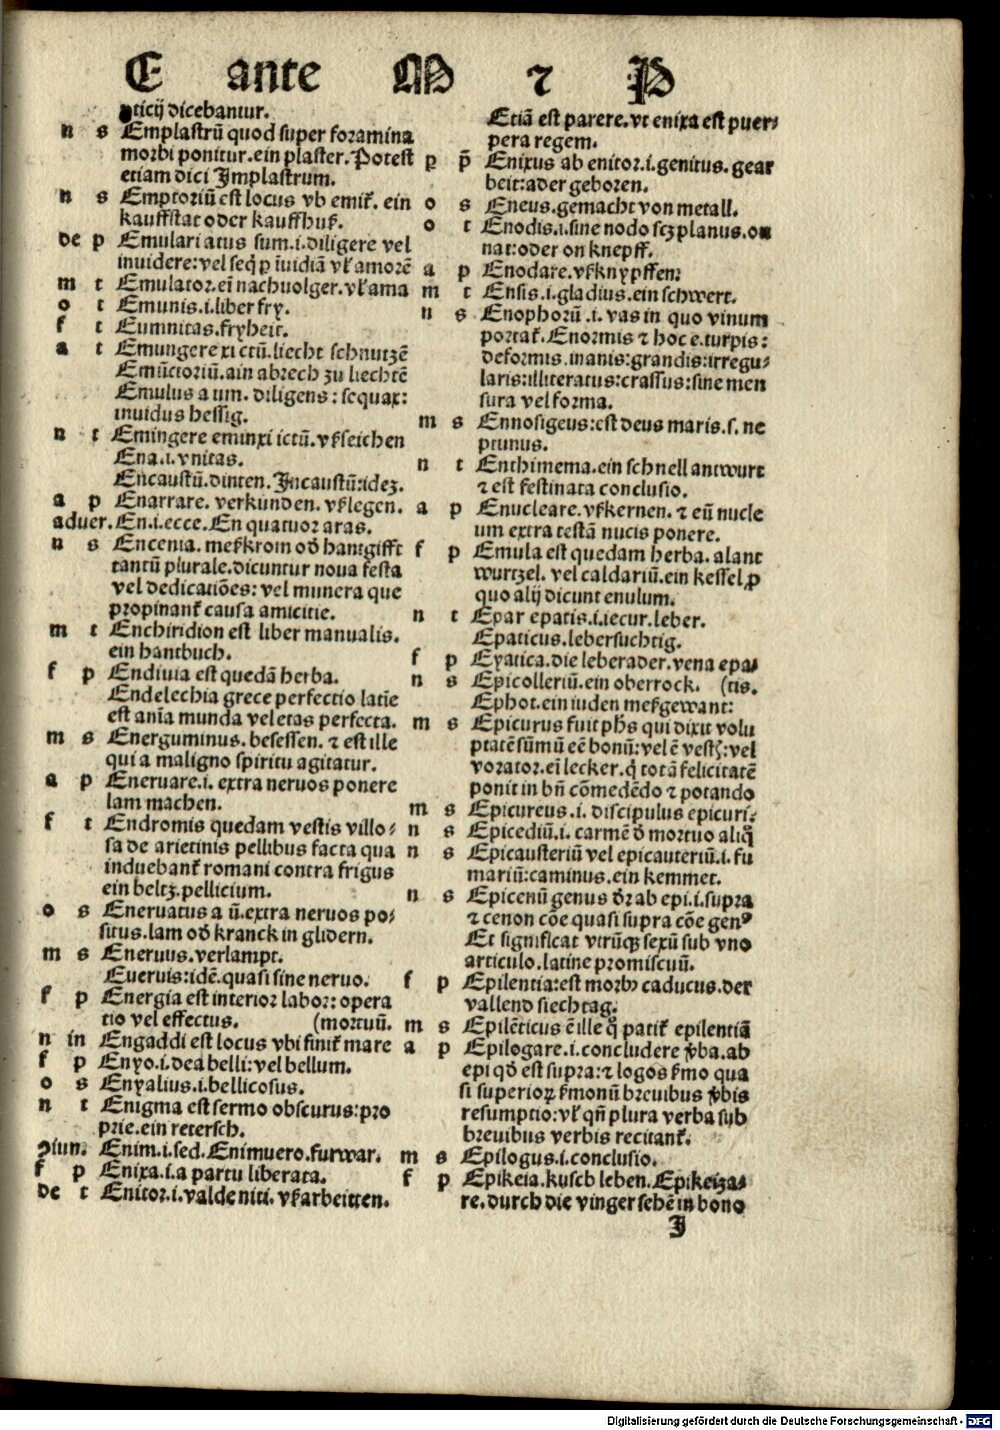 E ante M ⁊ P
ꝯticij dicebantur.
n s Emplastrū quod super foramina
morbi ponitur. ein plaster. Potest
etiam dici Implastrum.
n s Emptoriū est locus vb emit̃. ein
kauffstat oder kauffhuß.
de p Emulari atus sum .i. diligere vel
inuidere: vel seq̄ ꝑ īuidiā vł amorē
m t Emulator. eī nachuolger. vł ama
o t Emunis .i. liber fry.
f t Eumnitas. fryheit.
a t Emungere xi ctū. liecht schnutzē
Emūctoriū. ain abrech zu liechtē
Emulus a um. diligens: sequax:
inuidus hessig.
n t Emingere eminxi ictū. vßseichen
Ena .i. vnitas.
Encaustū. dinten. Incaustū: idez.
a p Enarrare. verkunden. vßlegen.
aduer. En .i. ecce. En quatuor aras.
n s Encenia. meßkrom od̄ hantgifft
tantū plurale. dicuntur noua festa
vel dedicatiōes: vel munera que
propinant̃ causa amicitie.
m t Enchiridion est liber manualis.
ein hantbuch.
f p Endiuia est quedā herba.
Endelechia grece perfectio latie
est anīa munda vel etas perfecta.
m s Energuminus. besessen. ⁊ est ille
qui a maligno spiritu agitatur.
a p Eneruare .i. extra neruos ponere
lam machen.
f t Endromis quedam vestis villo⸗
sa de arietinis pellibus facta qua
induebant̃ romani contra frigus
ein beltz. pellicium.
o s Eneruatus a ū. extra neruos po⸗
situs. lam od̄ kranck in glidern.
m s Eneruus. verlampt.
Eueruis: idē. quasi sine neruo.
f p Energia est interior labor: opera
tio vel effectus. (mortuū.
n in Engaddi est locus vbi finit̃ mare
f p Enyo .i. dea belli: vel bellum.
o s Enyalius .i. bellicosus.
n t Enigma est sermo obscurus: pro
prie. ein retersch.
ꝯiun. Enim .i. sed. Enimuero. furwar.
f p Enixa .i. a partu liberata.
de t Enitor .i. valde niti. vßarbeitten.
Etiā est parere. vt enixa est puer⸗
pera regem.
ꝑ p̄ Enixus ab enitor .i. genitus. gear
beit: ader geboren.
o s Eneus. gemacht von metall.
o t Enodis .i. sine nodo scz planus. on
nat: oder on knepff.
a p Enodare. vßknypffen:
m t Ensis .i. gladius. ein schwert.
n s Enophorū .i. vas in quo vinum
portat̃. Enormis ⁊ hoc e. turpis:
deformis. inanis: grandis: irregu⸗
laris: illiteratus: crassus: sine men
sura vel forma.
m s Ennosigeus: est deus maris .s. ne
ptunus.
n t Enthimema. ein schnell antwurt
⁊ est festinata conclusio.
a p Enucleare. vßkernen. ⁊ eū nucle
um extra testā nucis ponere.
f p Emula est quedam herba. alant
wurtzel. vel caldariū. ein kessel ꝓ
quo alij dicunt enulum.
n t Epar epatis .i. iecur. leber.
Epaticus. lebersuchtig.
f p Eyatica. die leberader. vena epa⸗
n s Epicolleriū. ein oberrock. (tis.
Ephot. ein iuden meßgewant:
m s Epicurus fuit ph̄s qui dixit volu
ptatē sūmū eē bonū: vel ē vesť: vel
vorator. eī lecker. q̇ totā felicitatē
ponit in bn̄ cōmedēdo ⁊ potando
m s Epicureus .i. discipulus epicuri⸗
n s Epicediū .i. carmē d̄ mortuo aliq̊
n s Epicausteriū vel epicauteriū .i. fu
mariū: caminus. ein kemmet.
n s Epicenū genus dr̄ ab epi .i. supra
⁊ cenon cōe quasi supra cōe genꝰ
Et significat vtrūqꝫ sexū sub vno
articulo. latine promiscuū.
f p Epilentia: est morbꝰ caducus. der
vallend siechtag.
m s Epilēticus ē ille q̇ patit̃ epilentiā
a p Epilogare .i. concludere v̄ba. ab
epi qd̄ est supra: ⁊ logos ßmo qua
si superioꝝ ßmonū breuibus v̄bis
resumptio: vł qn̄ plura verba sub
breuibus verbis recitant̃.
m s Epilogus .i. conclusio.
f p Epikeia. kusch leben. Epikeiza⸗
re. durch die vinger sehē in bono
I
Digitalisierung gefördert durch die Deutsche Forschungsgemeinschaft - DFG